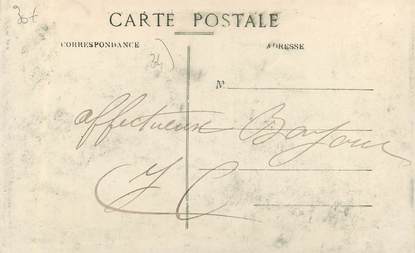 CARTE POSTALE
CORRESPONDANCE
ADRESSE
N°
affectueux Bonjour